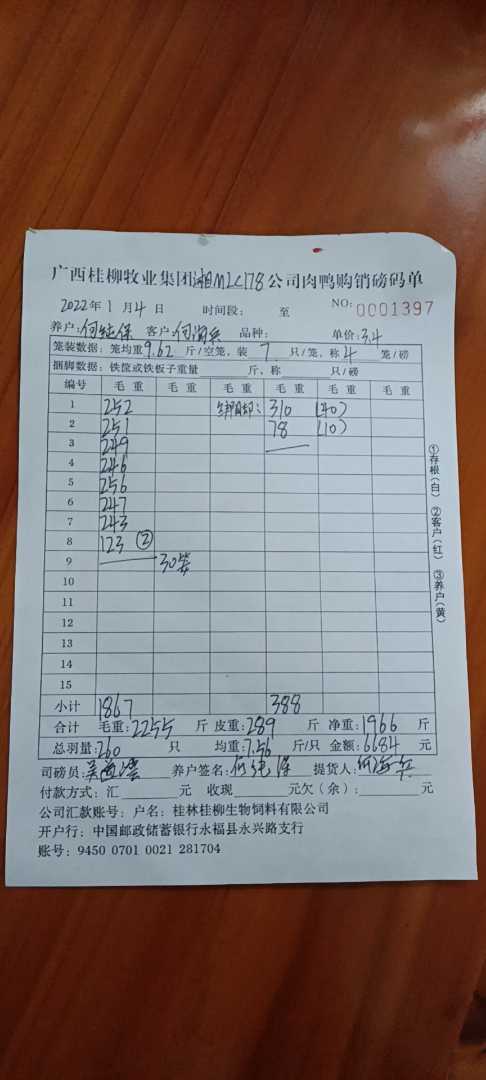 广西桂柳牧业集团湘MLC178公司肉鸭购销磅码单
2022年1月4日 时间段: 至 NO: 0001397
养户: 何纯保 客户: 何海兵 品种: 单价: 3.4
笼装数据: 笼均重9.62斤/空笼，装7只/笼，称4笼/磅
捆脚数据: 铁筐或铁板子重量 斤，称 只/磅
编号 毛重 毛重 毛重 毛重 毛重
1 252 310 (40)
2 251 78 (10)
3 249
4 246
5 256
6 247
7 243
8 123 ②
9 30笼
10
11
12
13
14
15
小计 1867 388
合计 毛重: 2255 斤 皮重: 289 斤 净重: 1966 斤
总羽量: 260 只 均重: 7.56 斤/只 金额: 6684 元
司磅员: 养户签名: 何纯保 提货人: 何海兵
付款方式: 汇 元 收现 元欠(余): 元
公司汇款账号: 户名: 桂林桂柳生物饲料有限公司
开户行: 中国邮政储蓄银行永福县永兴路支行
账号: 9450 0701 0021 281704
①存根(白) ②客户(红) ③养户(黄)